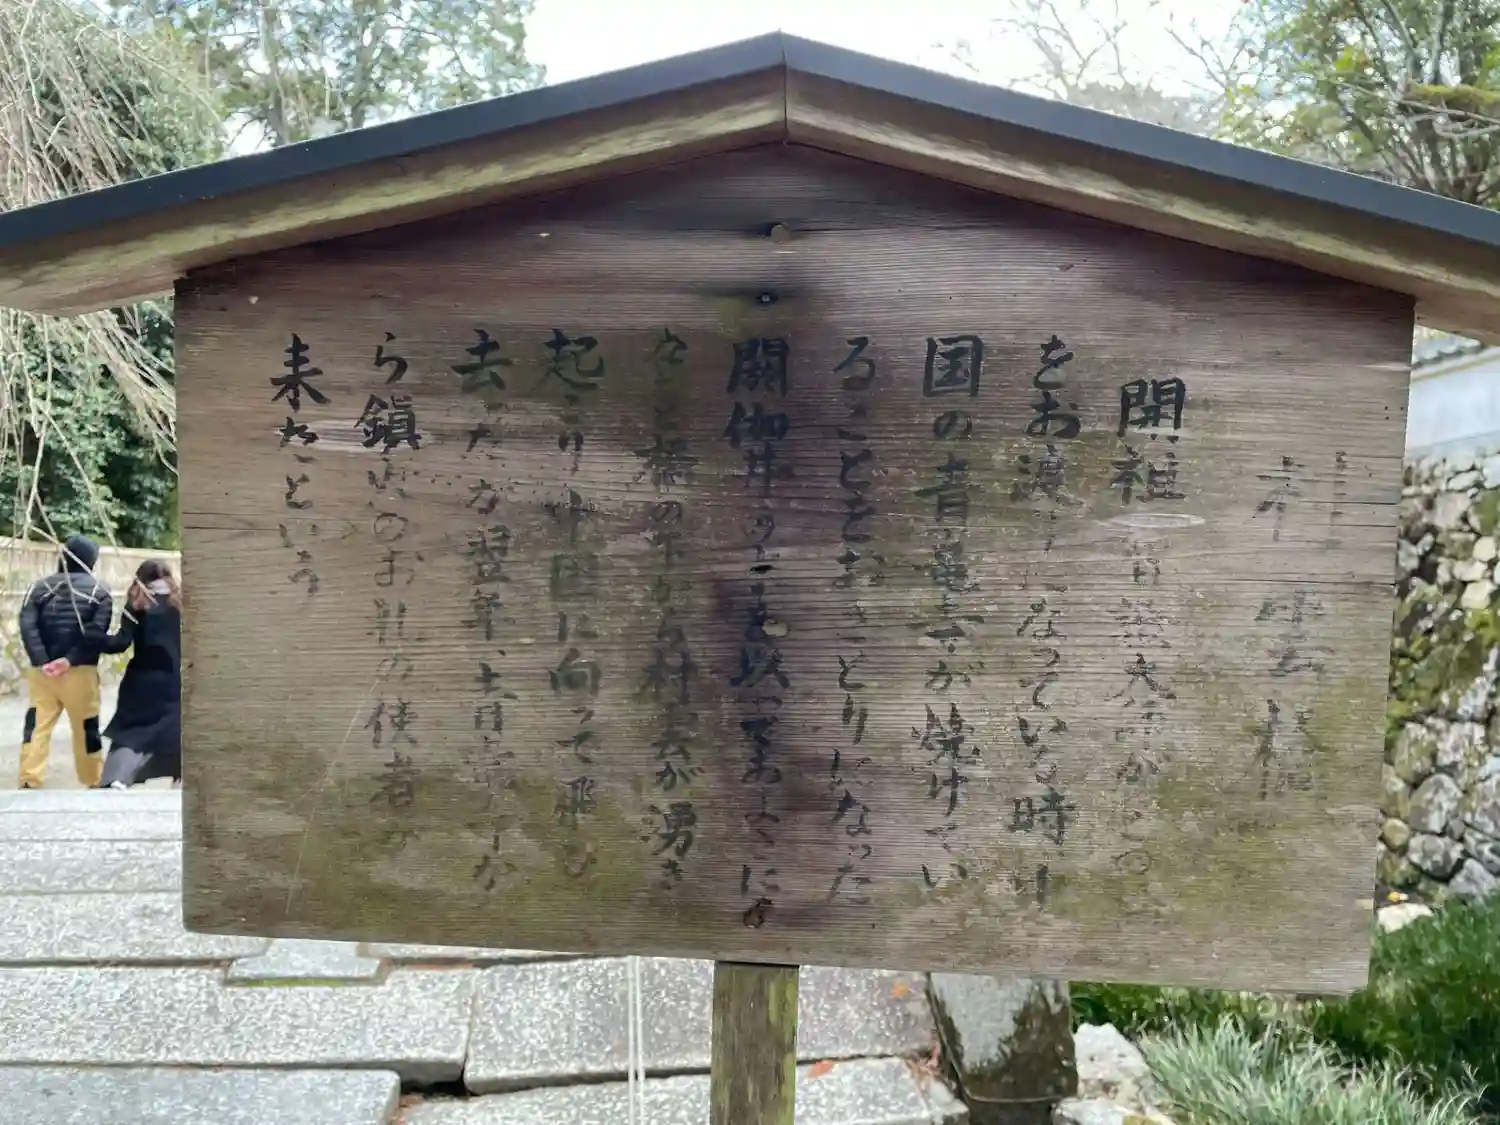 村雲橋
開祖智証大師がこの
をお渡りになっている時中
国の青竜寺が焼けてい
ることをおさとりになった
閼伽井の水を以て
と橋の下から村雲が湧き
起こり中国に向って飛び
去った翌年、青竜寺か
ら鎮火のお礼の使者が
来たという